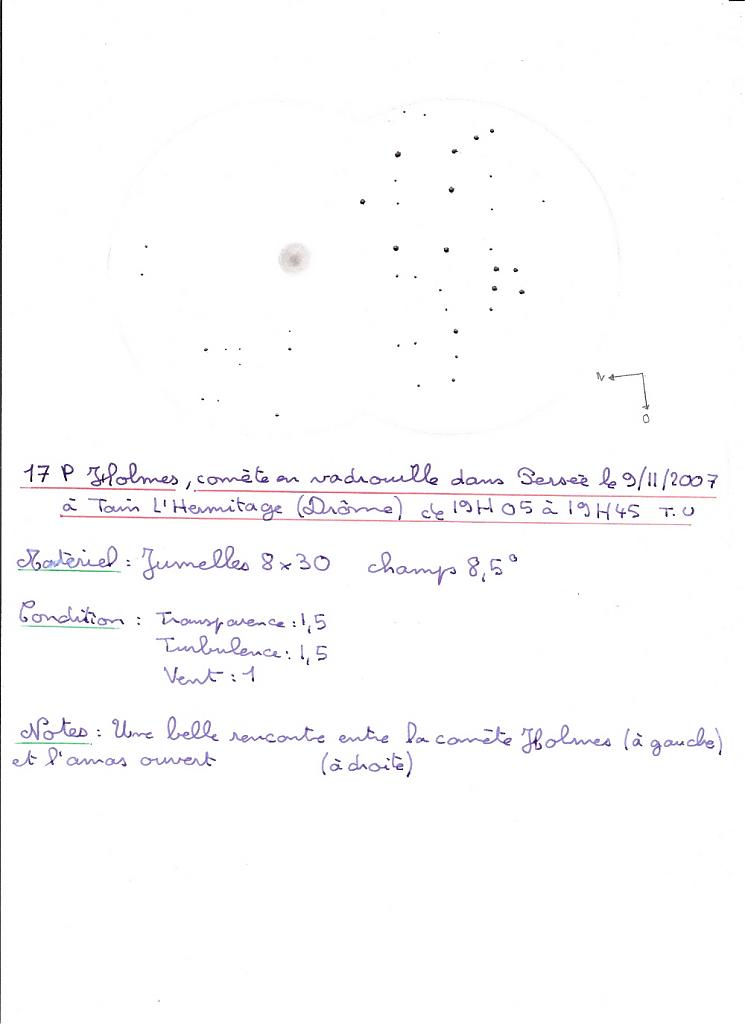 N
O
17 P Holmes, comète en vadrouille dans Persée le 9/11/2007
à Tain L'Hermitage (Drôme) de 19H05 à 19H45 T.U
Matériel : Jumelles 8x30 champs 8,5°
Condition : Transparence : 1,5
Turbulence : 1,5
Vent : 1
Notes : Une belle rencontre entre la comète Holmes (à gauche)
et l'amas ouvert (à droite)